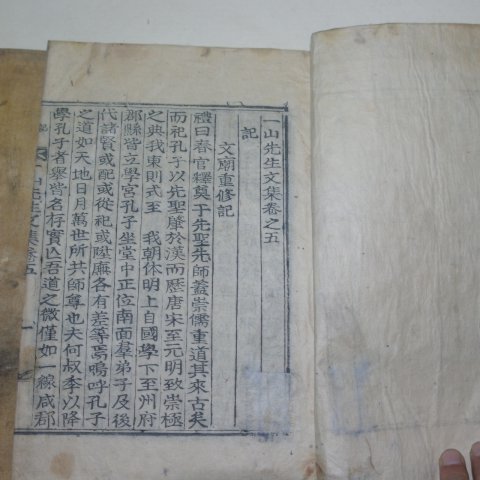 一山先生文集卷之五
記
文廟重修記
禮曰春官釋奠于先聖先師蓋崇儒重道其來古矣
而祀孔子以先聖肇於漢而歷唐宋至元明致崇極
之典我東則式至 我朝休明上自國學下至州府
郡縣皆立學宮孔子坐堂中正位南面羣弟子及後
代諸賢或配或從祀或陞廡各有差等焉嗚呼孔子
之道如天地日月萬世所共師尊也夫何叔季以降
學孔子者擧皆名存實亡吾道之微僅如一線咸郡
一山先生文集卷五
記